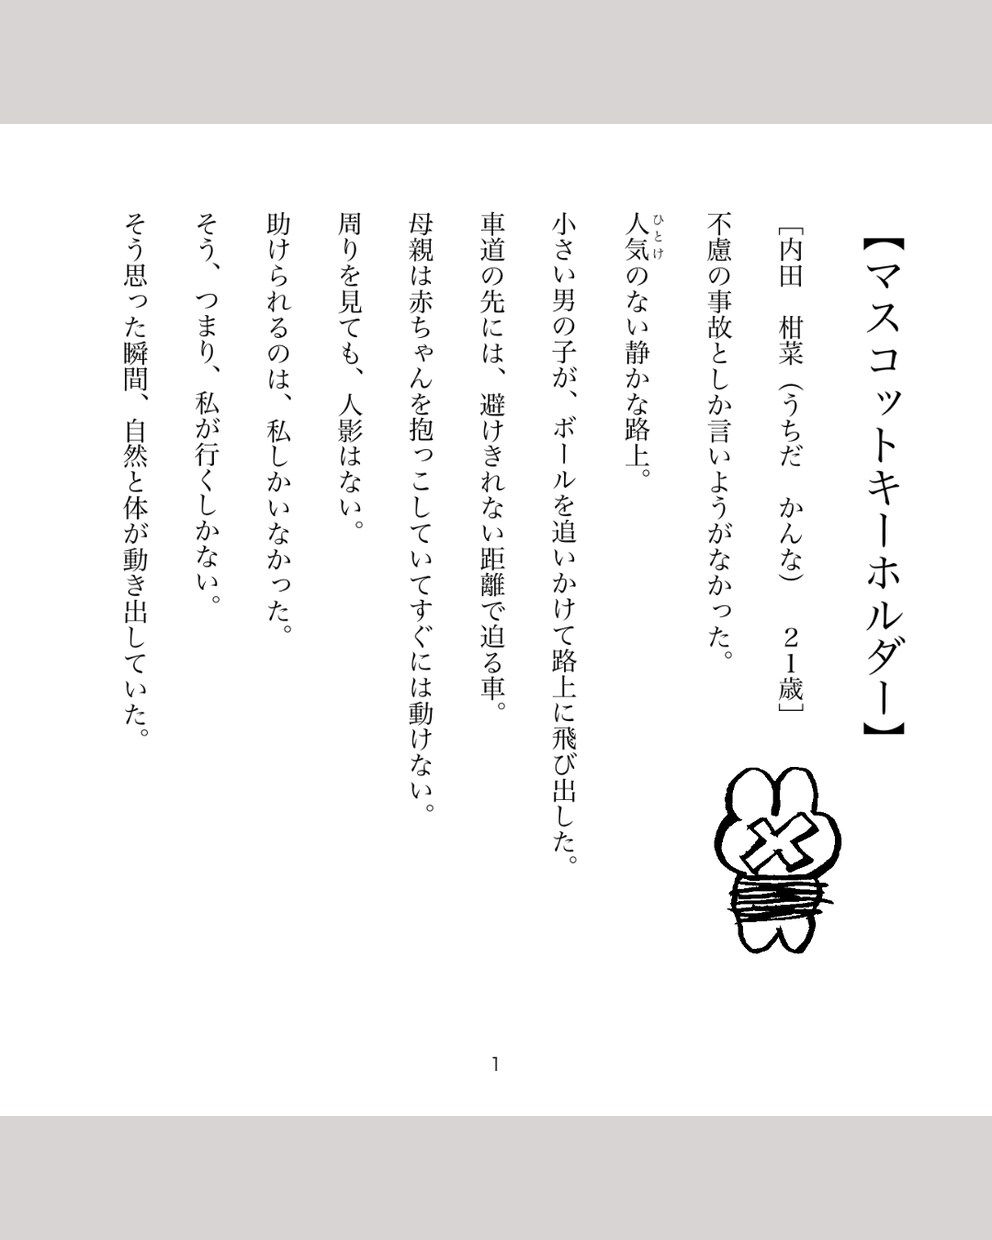 【マスコットキーホルダー】
［内田　柑菜（うちだ　かんな）　２１歳］
不慮の事故としか言いようがなかった。
人気のない静かな路上。
ひとけ
小さい男の子が、ボールを追いかけて路上に飛び出した。
車道の先には、避けきれない距離で迫る車。
母親は赤ちゃんを抱っこしていてすぐには動けない。
周りを見ても、人影はない。
助けられるのは、私しかいなかった。
そう、つまり、私が行くしかない。
そう思った瞬間、自然と体が動き出していた。
1